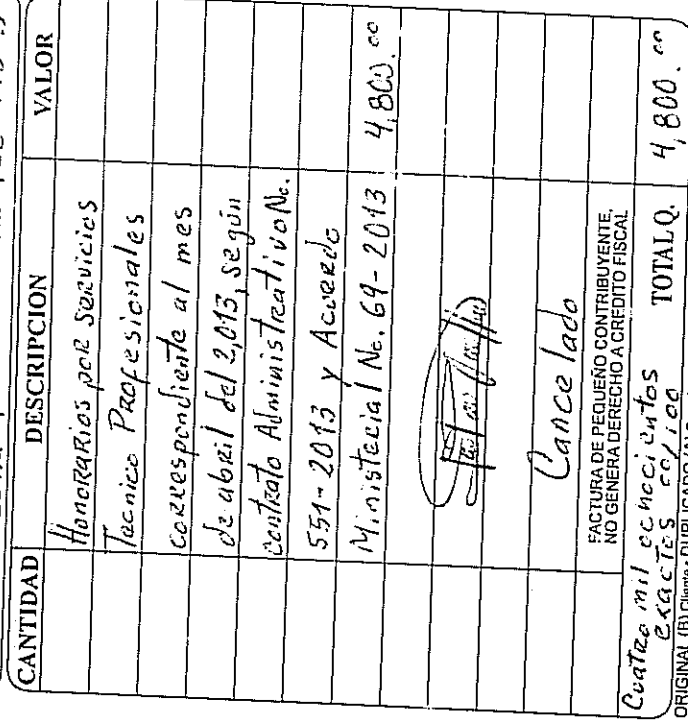 CANTIDAD DESCRIPCION VALOR
Honorarios por Servicios
Tecnico Profesionales
correspondiente al mes
de abril del 2,013, según
contrato Administrativo No.
551-2013 y Acuerdo
Ministerial No. 69-2013 4,800.00
Cancelado
FACTURA DE PEQUEÑO CONTRIBUYENTE,
NO GENERA DERECHO A CREDITO FISCAL
Cuatro mil ochocientos
exactos 00/100 TOTAL Q. 4,800.00
ORIGINAL (B) Cliente: DUPLICADO